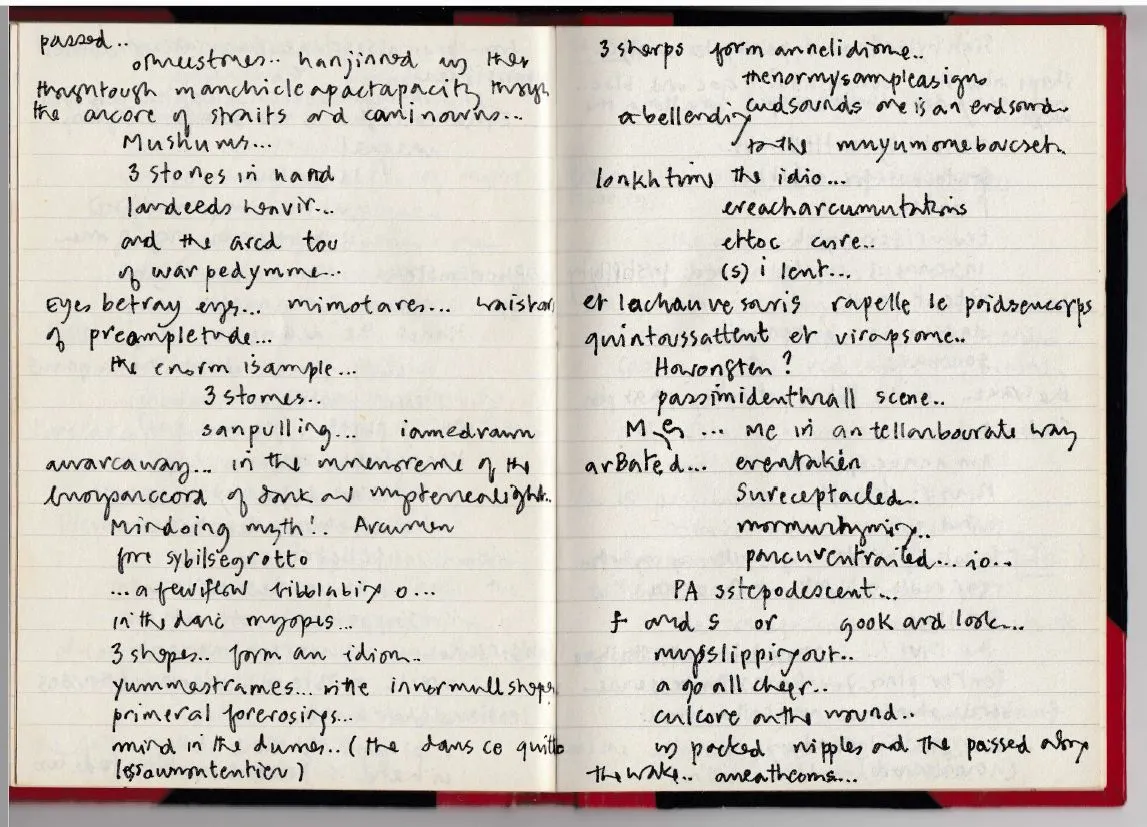 passed..
omeestones.. hanjinned in their
thoughtough manchicleapactapacity through
the arcore of straits and caminowns...
Mushums...
3 stones in hand
landeeds heavir...
and the arcd tou
of warpedymme...
Eyes betray eyes... mimotares...
of preampletude...
the enorm isample...
3 stomes..
sanpulling... iamedrawn
awarcaway... in the of the
of dark and
Mindoing myth!. Arcumen
fore sybilsegrotto
...afewifeow bibblabixy o...
in the darc myopes...
3 shopes.. form an idiom..
yummestrames... in the innermullshopes
primeral forerosings...
mind in the dumes.. (the dans ce quitte
lessaumontentier)
3 sherps form annelidiome..
thenormysampleasigns
abellendixy cudsounds one is an endsound..
to the mnyumomeboucset..
lonkhtime the idio...
ereacharcumutations
ettoc cure..
(s) i lent...
et lachauvesouris rapelle le poidsencorps
quintoussattent et virapsome..
Howongten ?
passimidenthrall scene..
M es ... me in an tellanbourate way
arBated... eventaken
Sureceptacled..
mormurhymixy..
pancurventrailed... io..
PA sstepodescent...
f and s or gook and look...
mypslippiryout..
a go all cheer..
culcore onthe wound..
in packed nipples and the passed along
the wake.. aneathcoms...